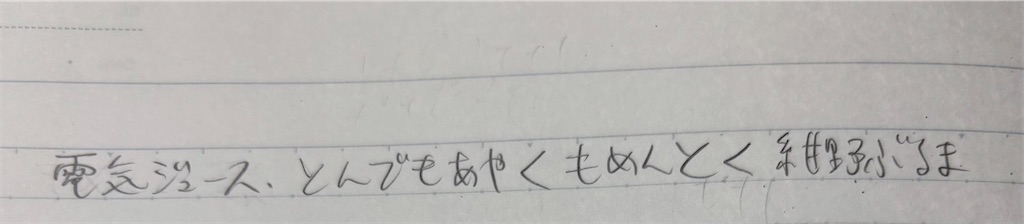 電気ジュース、とんでもあやくもめんとく 紺野ぶるま